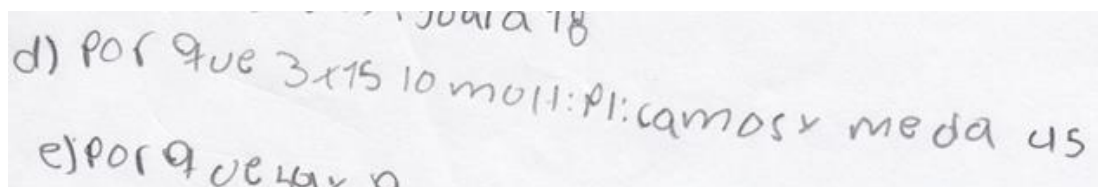 igual a 18
d) Por que 3x15 lo multiplicamos y me da 45
e) Por que